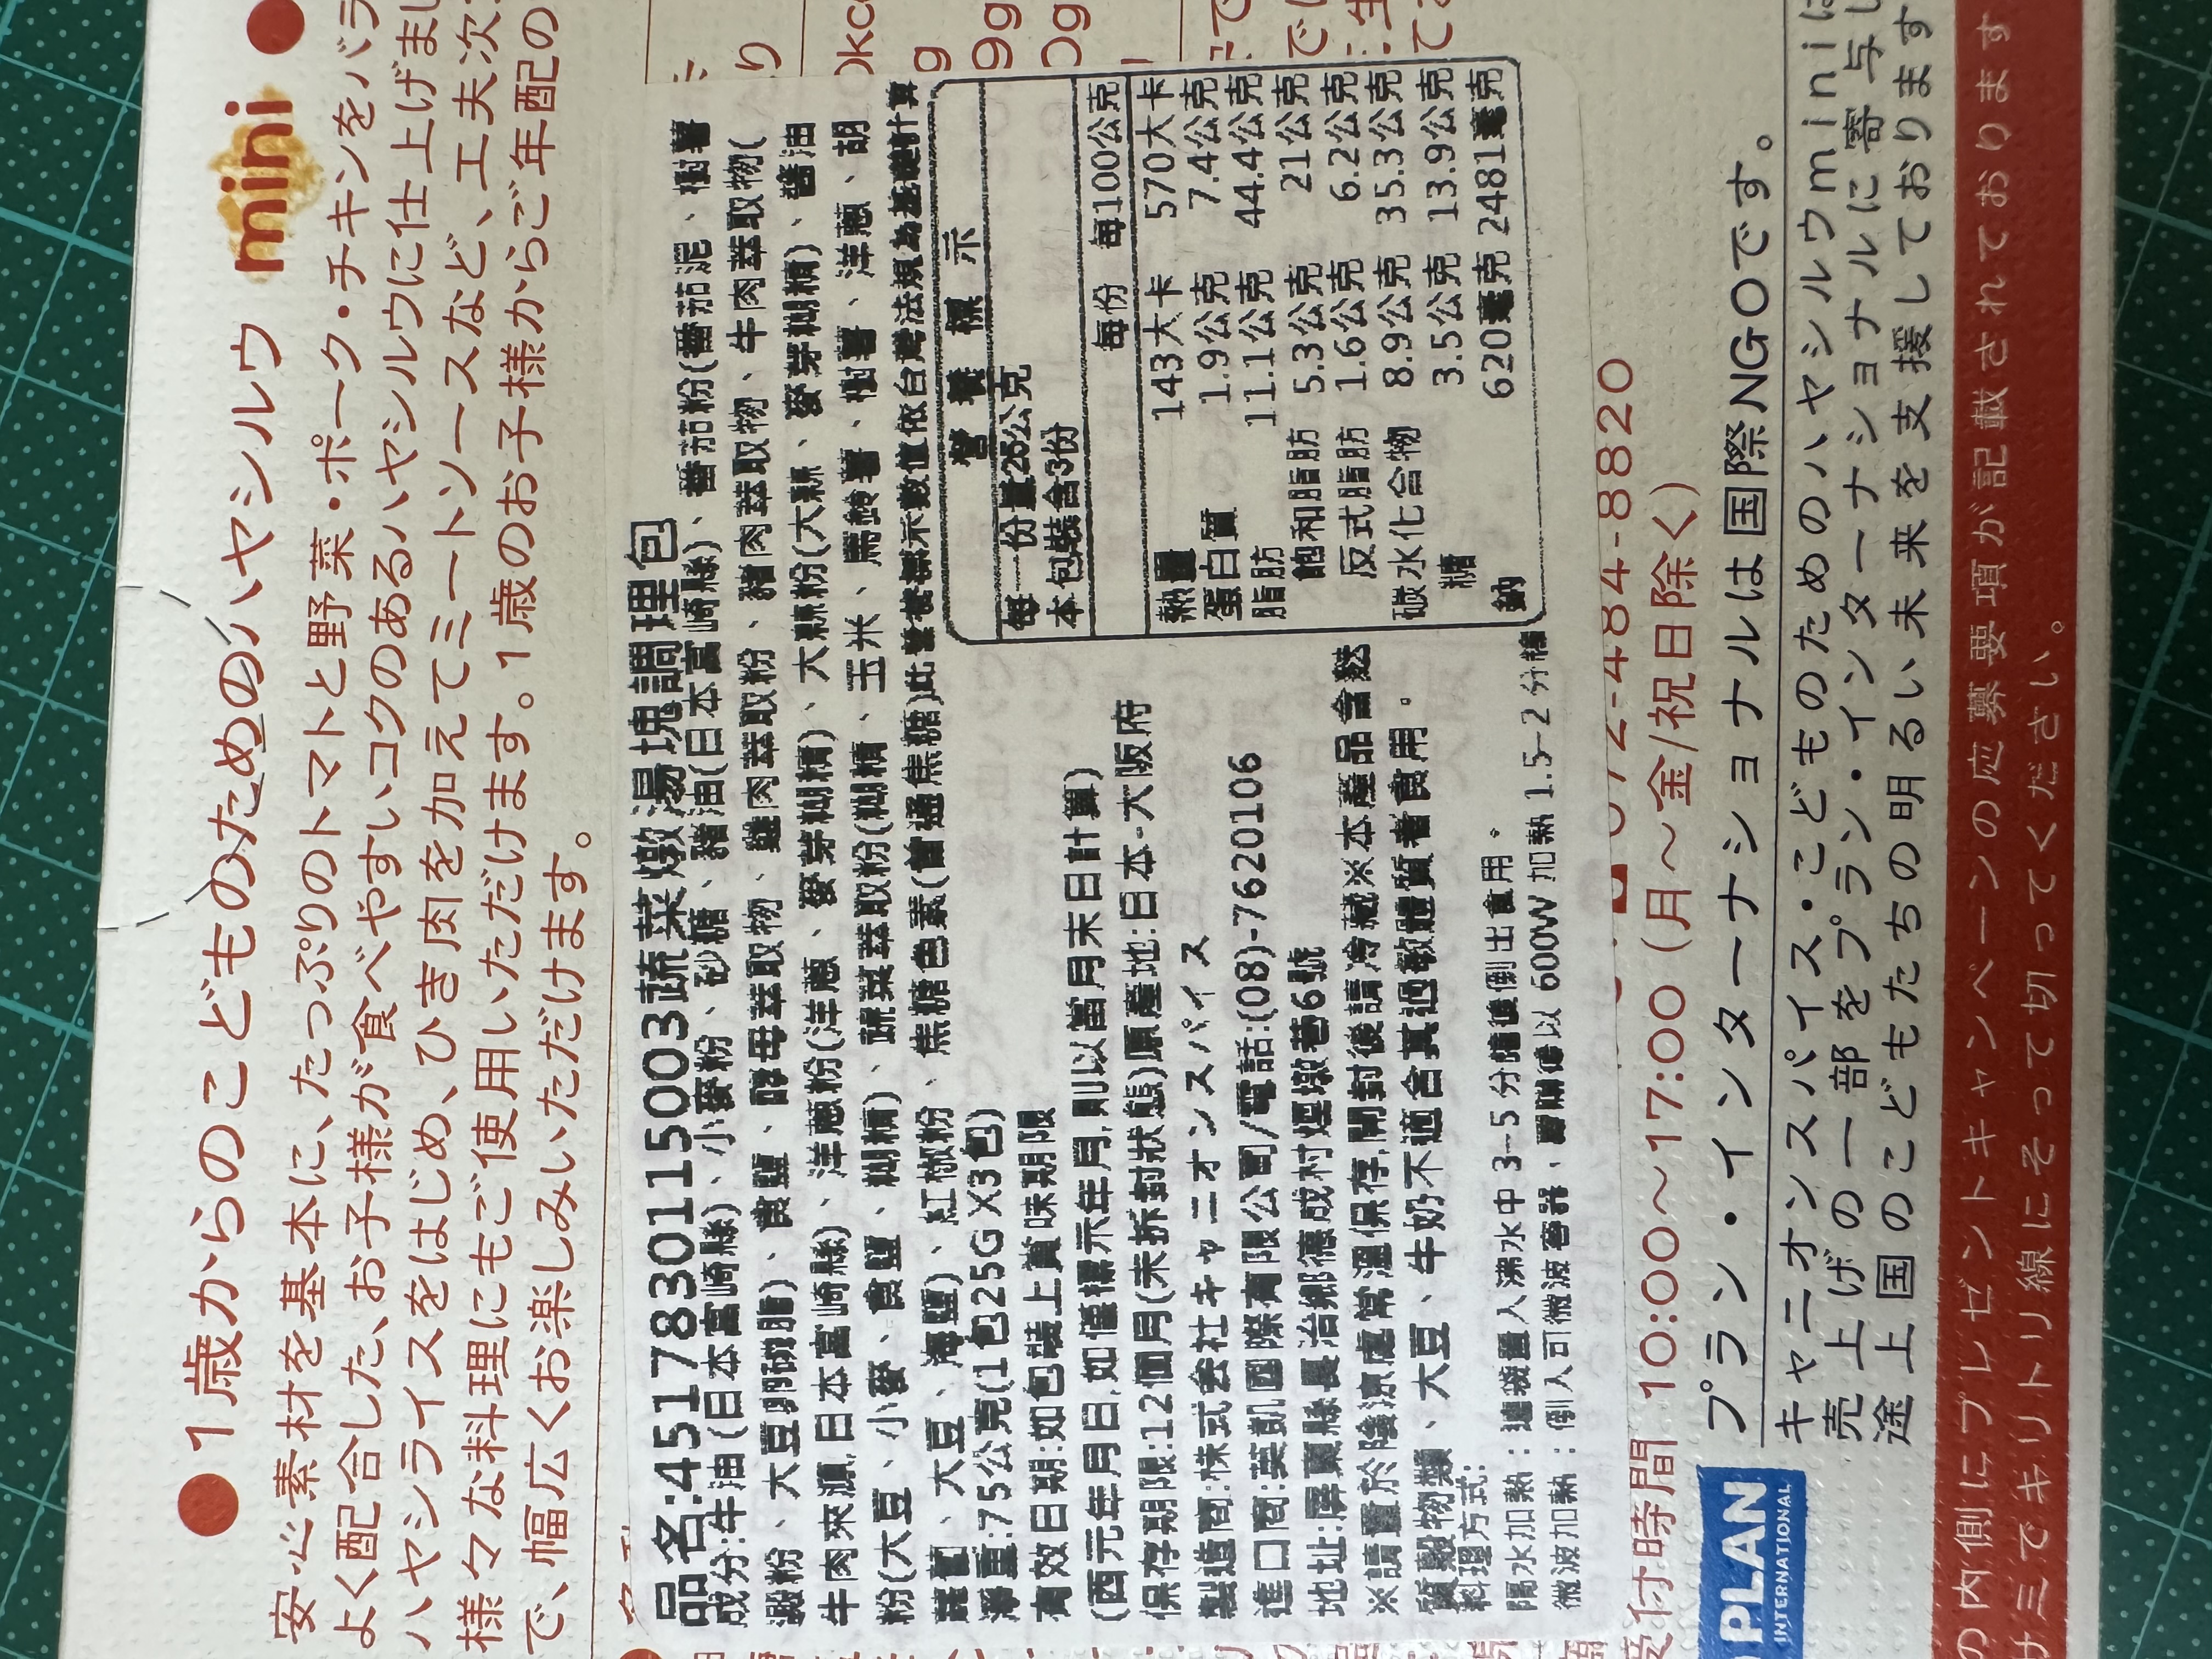 ●1歳からのこどものためのハヤシルウ mini ●
安心素材を基本に、たっぷりのトマトと野菜・ポーク・チキンをバラ
よく配合した、お子様が食べやすいコクのあるハヤシルウに仕上げまし
ハヤシライスをはじめ、ひき肉を加えてミートソースなど、工夫次
様々な料理にもご使用いただけます。1歳のお子様からご年配の
で、幅広くお楽しみいただけます。
品名:4517830115003蔬菜燉湯塊調理包
成分:牛油(日本宮崎縣)、小麥粉、砂糖、豬油(日本宮崎縣)、番茄粉(番茄泥、樹薯
澱粉、大豆卵磷脂)、食鹽、酵母萃取物、雞肉萃取粉、豬肉萃取物、牛肉萃取物(
牛肉來源,日本宮崎縣)、洋蔥粉(洋蔥、麥芽糊精)、大蒜粉(大蒜、麥芽糊精)、醬油
粉(大豆、小麥、食鹽、糊精)、蔬菜萃取粉(糊精、玉米、馬鈴薯、樹薯、洋蔥、胡
蘿蔔、大豆、海鹽)、紅椒粉、焦糖色素(普通焦糖)此營養標示數值依台灣法規為基礎計算
淨重:75公克(1包25GX3包)
有效日期:如包裝上賞味期限
(西元年月日,如僅標示年月,則以當月末日計算)
保存期限:12個月(未拆封狀態)原產地:日本-大阪府
製造商:株式会社キャニオンスパイス
進口商:英凱國際有限公司/電話:(08)-7620106
地址:屏東縣長治鄉德成村煙墩巷6號
※請置於陰涼處常溫保存,開封後請冷藏※本產品含麩
質穀物類、大豆、牛奶不適合其過敏體質者食用。
料理方式:
隔水加熱:連袋置入沸水中 3-5 分鐘後倒出食用。
微波加熱:倒入可微波容器,覆膜後以 600W 加熱 1.5-2 分鐘
營養標示
每一份量25公克
本包裝含3份
每份 每100公克
熱量 143大卡 570大卡
蛋白質 1.9公克 7.4公克
脂肪 11.1公克 44.4公克
飽和脂肪 5.3公克 21公克
反式脂肪 1.6公克 6.2公克
碳水化合物 8.9公克 35.3公克
糖 3.5公克 13.9公克
鈉 620毫克 2481毫克
072-484-8820
受付時間 10:00～17:00(月～金/祝日除く)
PLAN INTERNATIONAL
プラン・インターナショナルは国際NGOです。
キャニオンスパイス・こどものためのハヤシルウminiは
売上げの一部をプラン・インターナショナルに寄与し
途上国のこどもたちの明るい未来を支援しております
の内側にプレゼントキャンペーンの応募要項が記載されております
サミでキリトリ線にそって切ってください。